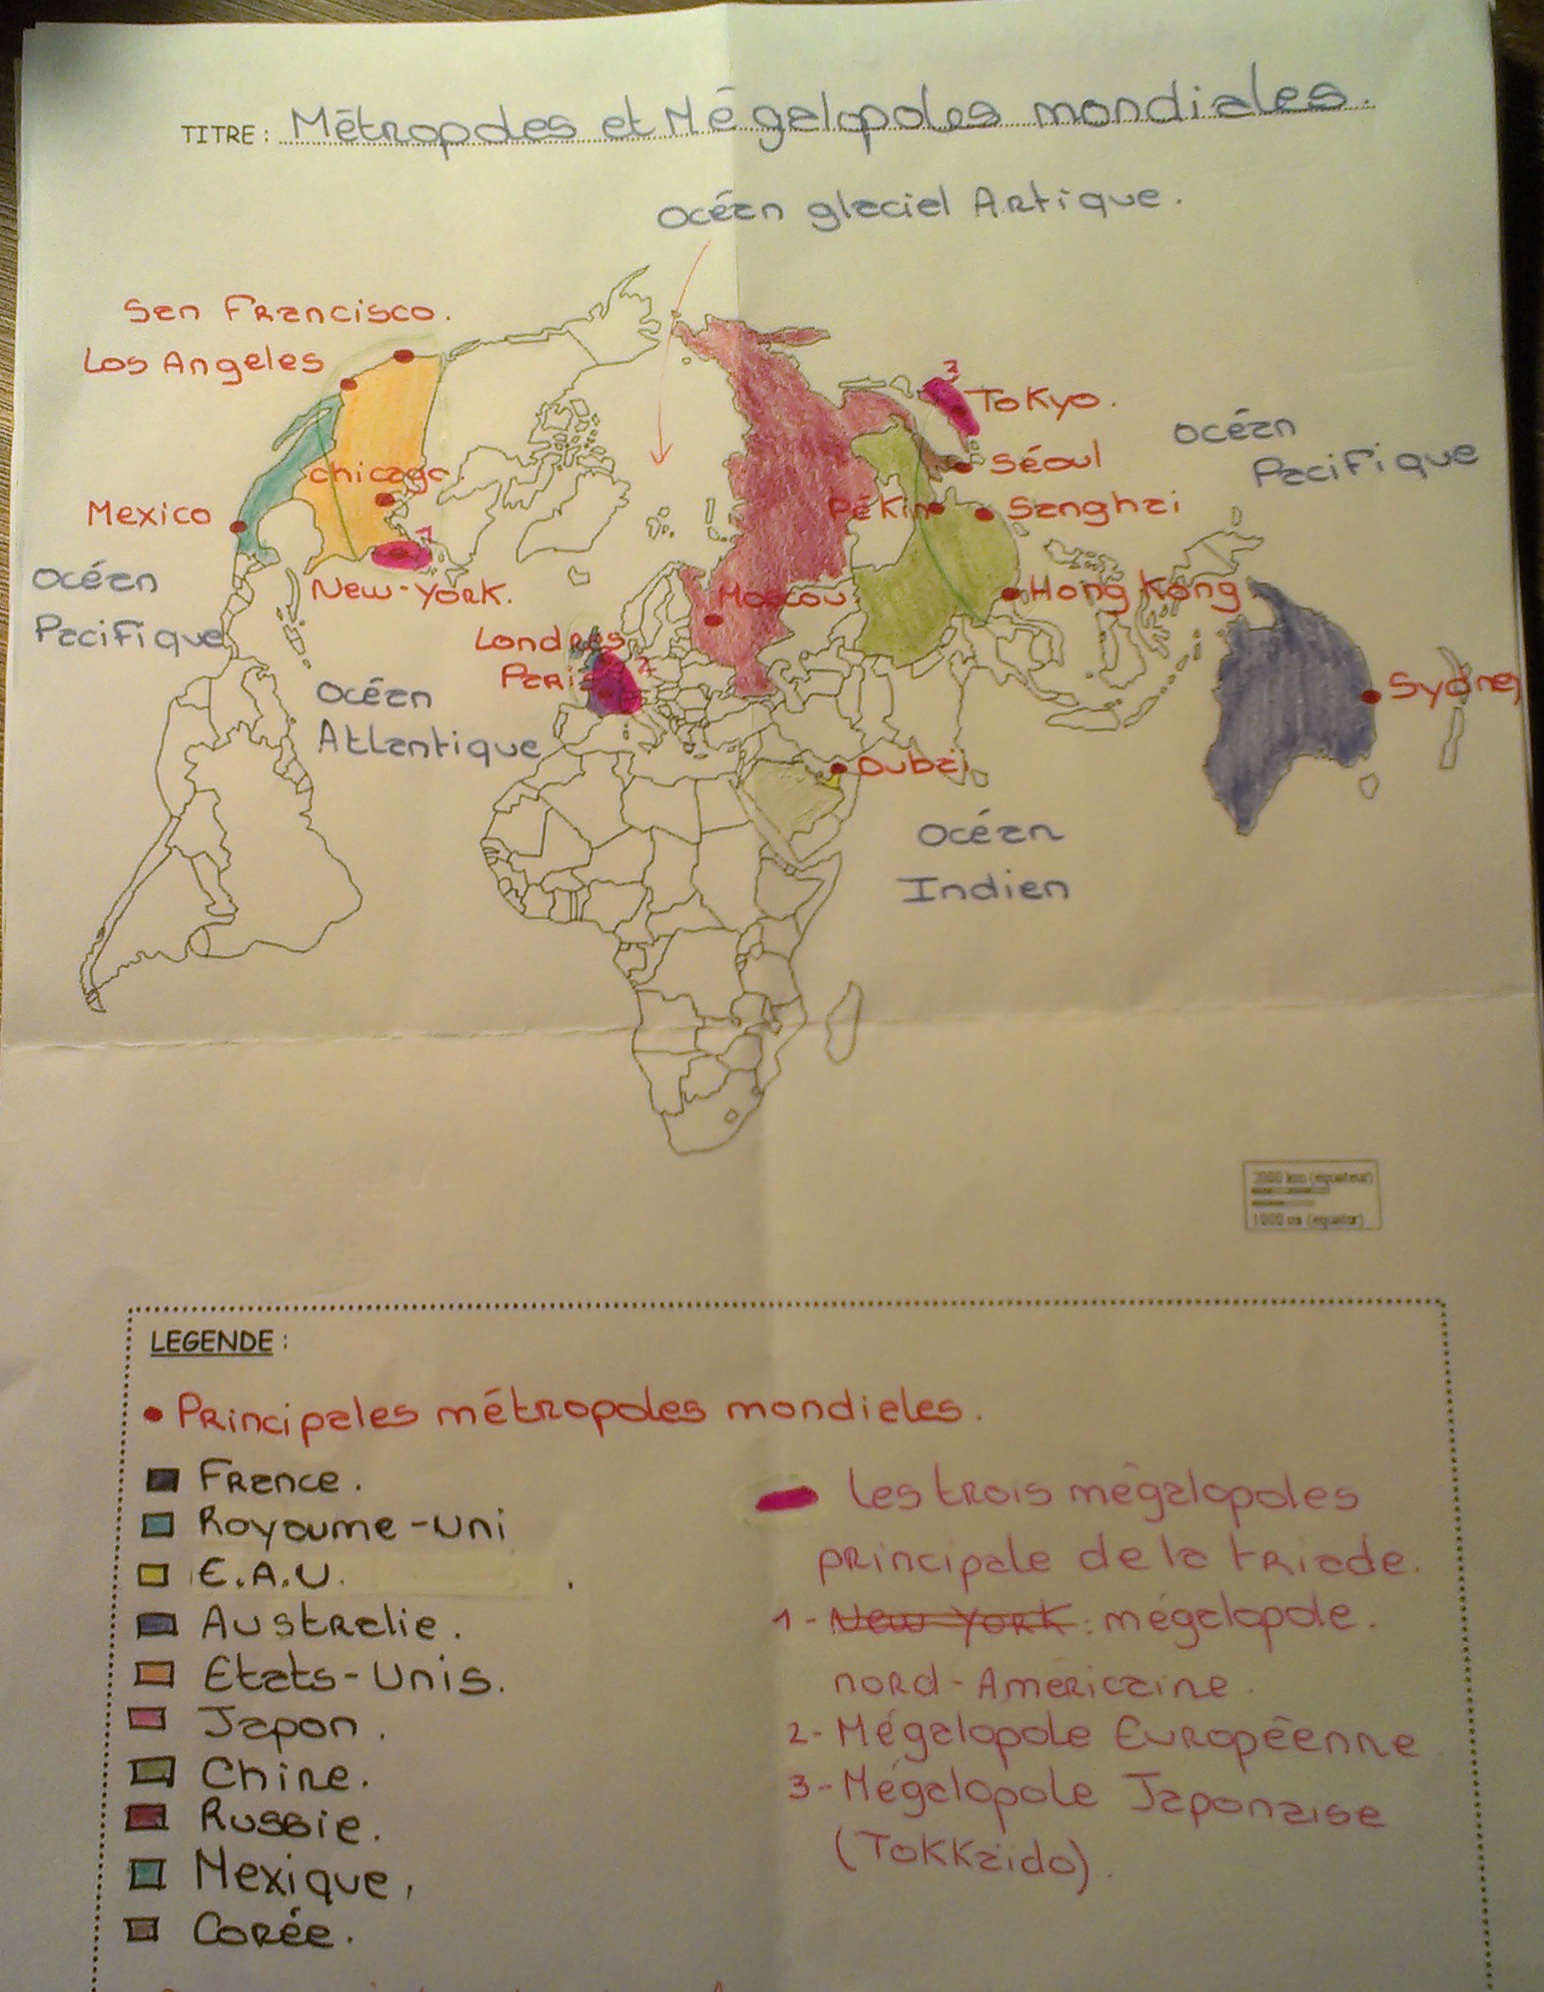 TITRE : Métropoles et Mégalopoles mondiales.
Océan glaciel Artique.
San Francisco.
Los Angeles
3
Tokyo.
Océan
Pacifique
Séoul
chicago
Mexico
Pékin
Sanghai
1
Océan
Pacifique
New-York.
Moscou
Hong Kong
Londres
Paris
2
Sydney
Océan
Atlantique
Dubai
Océan
Indien
2000 km (équateur)
1000 (equator)
LEGENDE :
• Principales métropoles mondiales.
France.
Royaume-Uni
E.A.U.
Australie.
Etats-Unis.
Japon.
Chine.
Russie.
Mexique,
Corée.
les trois mégalopoles
principale de la triade.
1- New York : mégalopole.
nord-Américaine.
2- Mégalopole Européenne
3- Mégalopole Japonaise
(Tokkaido).